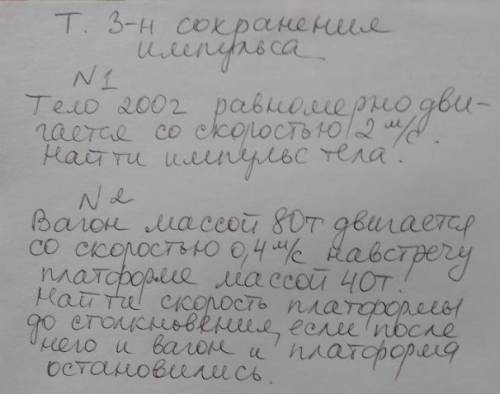 Т. З-н сохранения
импульса
N1
Тело 200г равномерно дви-
гается со скоростью 2 м/с.
Найти импульс тела.
N2
Вагон массой 80т двигается
со скоростью 0,4 м/с навстречу
платформе массой 40т.
Найти скорость платформы
до столкновения, если после
него и вагон и платформа
остановились.